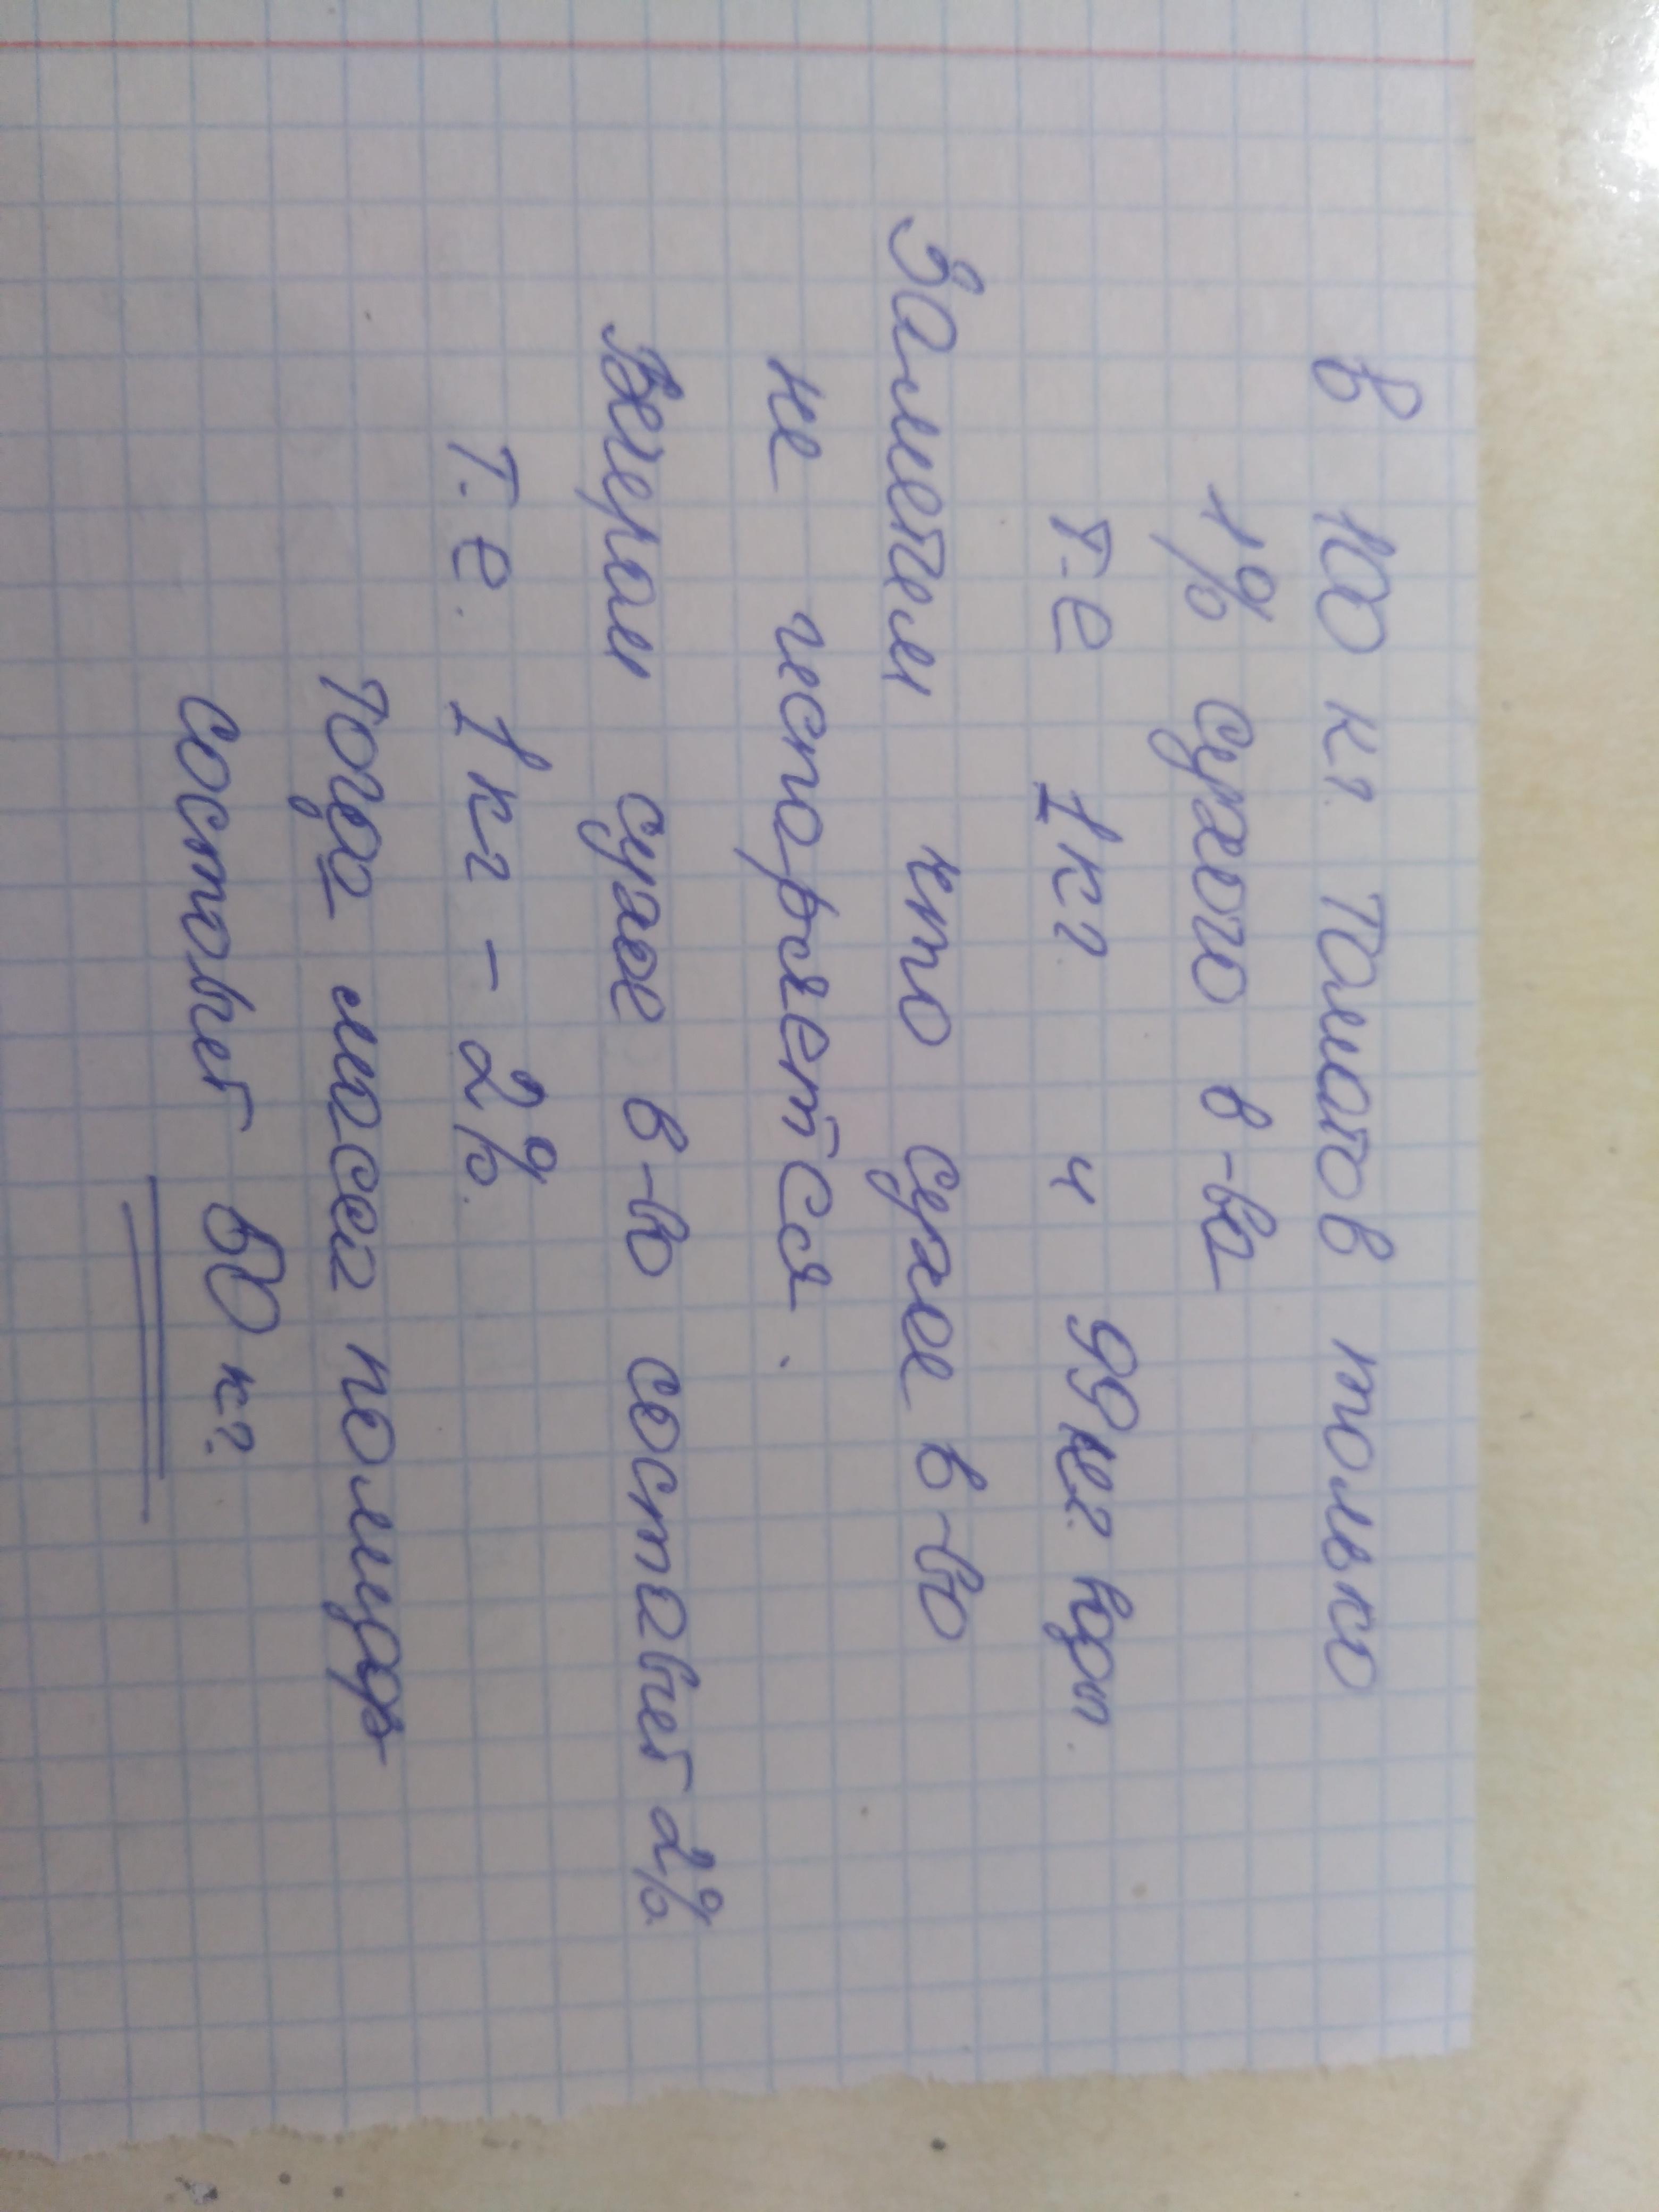 В 100 кг томатов только
1% сухого в-ва
т.е 1кг и 99кг воды
Заметем что сухое в-во
не испаряется.
Вечером сухое в-во составит 2%
т.е. 1кг - 2%.
Тогда масса помидор
составит 50 кг